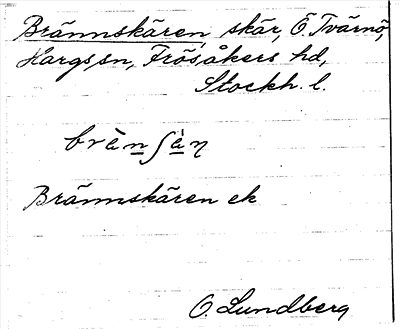 Brännskären, skär, Ö. Tvärnö,
Hargs sn, Frösåkers hd,
Stockh. l.
brän∫äɳ
Brännskären ek
O. Lundberg